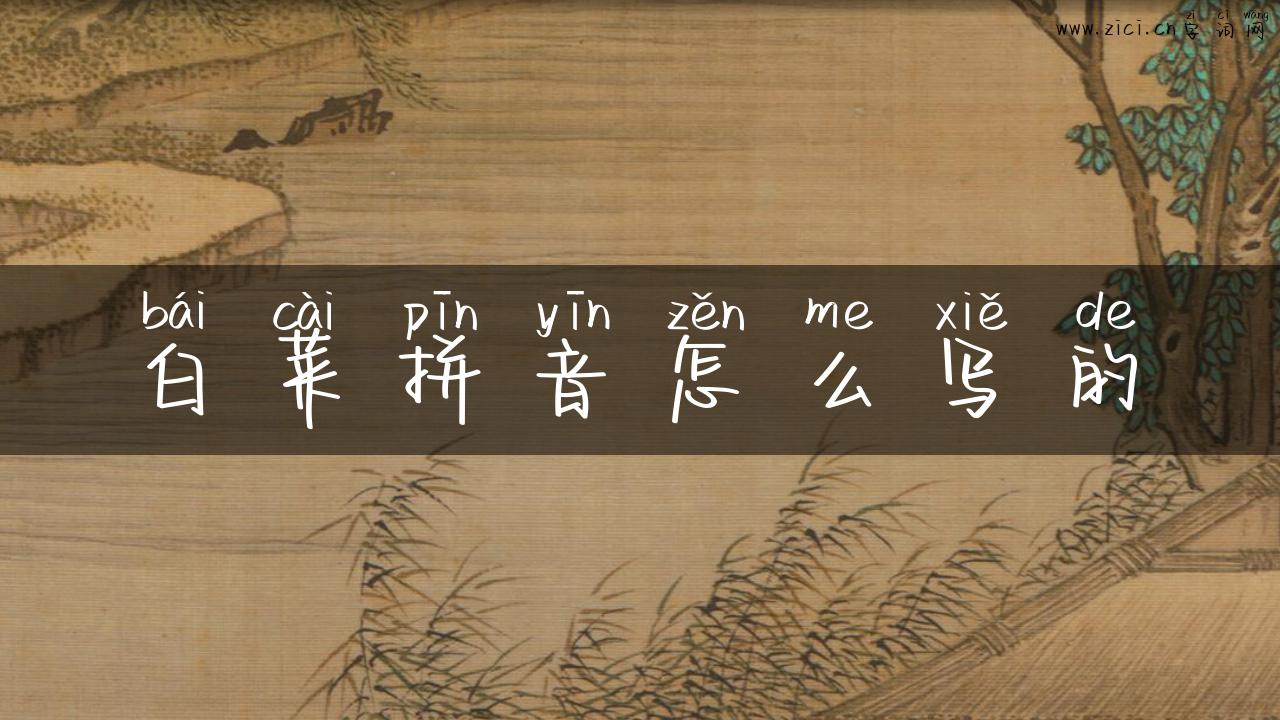 zì cí wǎng
www.zici.cn 字 词 网
bái cài pīn yīn zěn me xiě de
白 菜 拼 音 怎 么 写 的